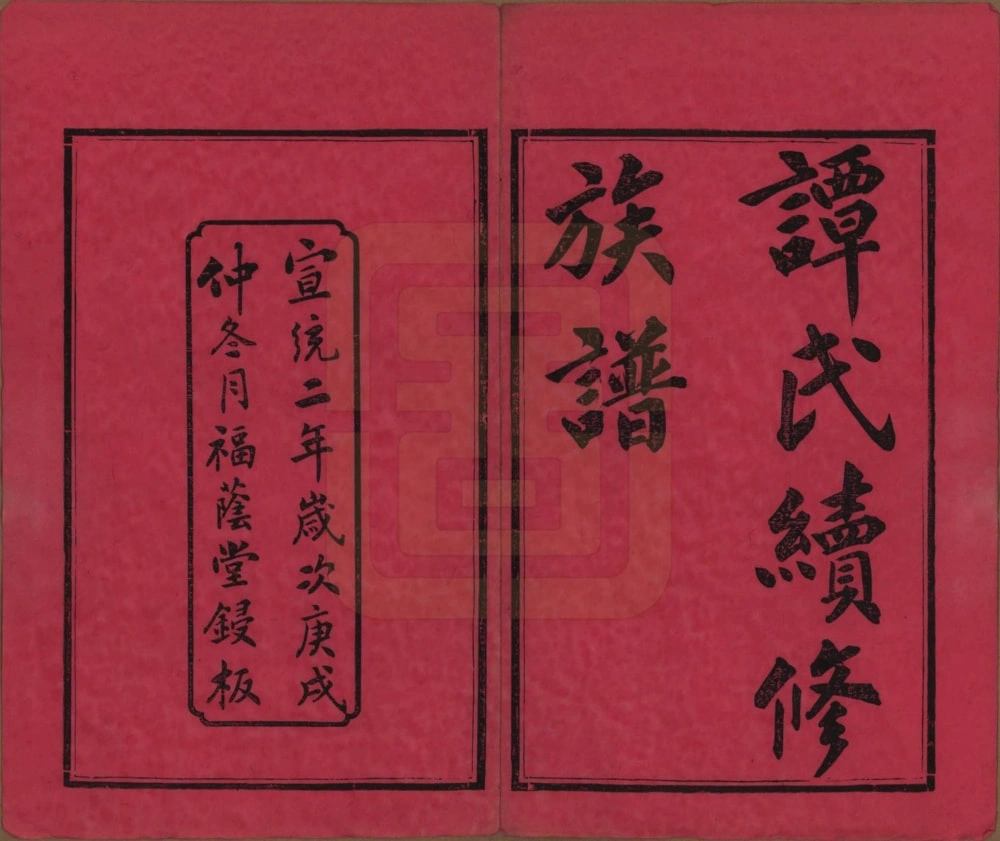 譚氏續修
族譜
宣統二年歲次庚戌
仲冬月福蔭堂鋟板